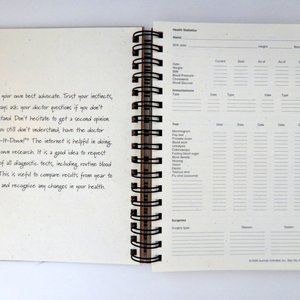 your own best advocate. Trust your instincts,
ays ask your doctor questions if you don't
rstand. Don't hesitate to get a second opinion.
ou still don't understand, have the doctor
-It-Down!" The internet is helpful in doing
own research. It is a good idea to request
of all diagnostic tests, including routine blood
This is useful to compare results from year to
and recognize any changes in your health.
Health Statistics
Name
Birth date Height
Current Goal As of As of
Date
Weight
BMI
Blood Pressure
Cholesterol
Blood Glucose
Immunizations
Type Date Type Date
Test Date Date Date
Mammogram
Pap test
Thyroid
Blood work
Urinalysis
Colonoscopy
Fasting blood sugar
Bone density
Hearing
Vision
Testicular exam
Flu shot (seasonal)
Surgeries
Surgery type Reason Season